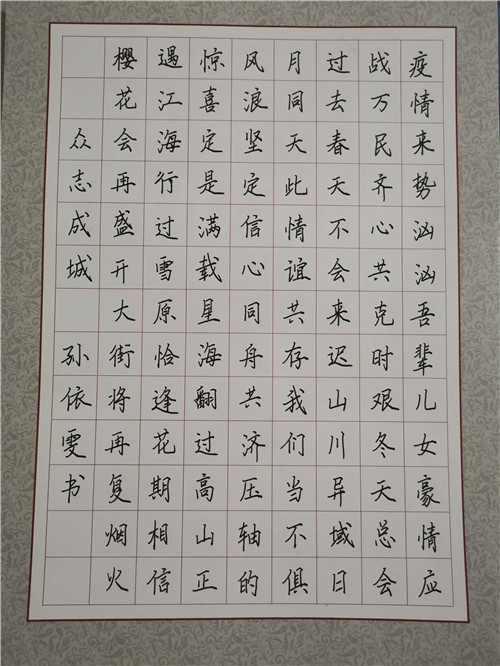 疫情来势汹汹吾辈儿女豪情应
战万民齐心共克时艰冬天总会
过去春天不会来迟山川异域日
月同天此情谊共存我们当不俱
风浪坚定信心同舟共济压轴的
惊喜定是满载星海翻过高山正
遇江海行过雪原恰逢花期相信
樱花会再盛开大街将再复烟火
众志成城 孙依雯书